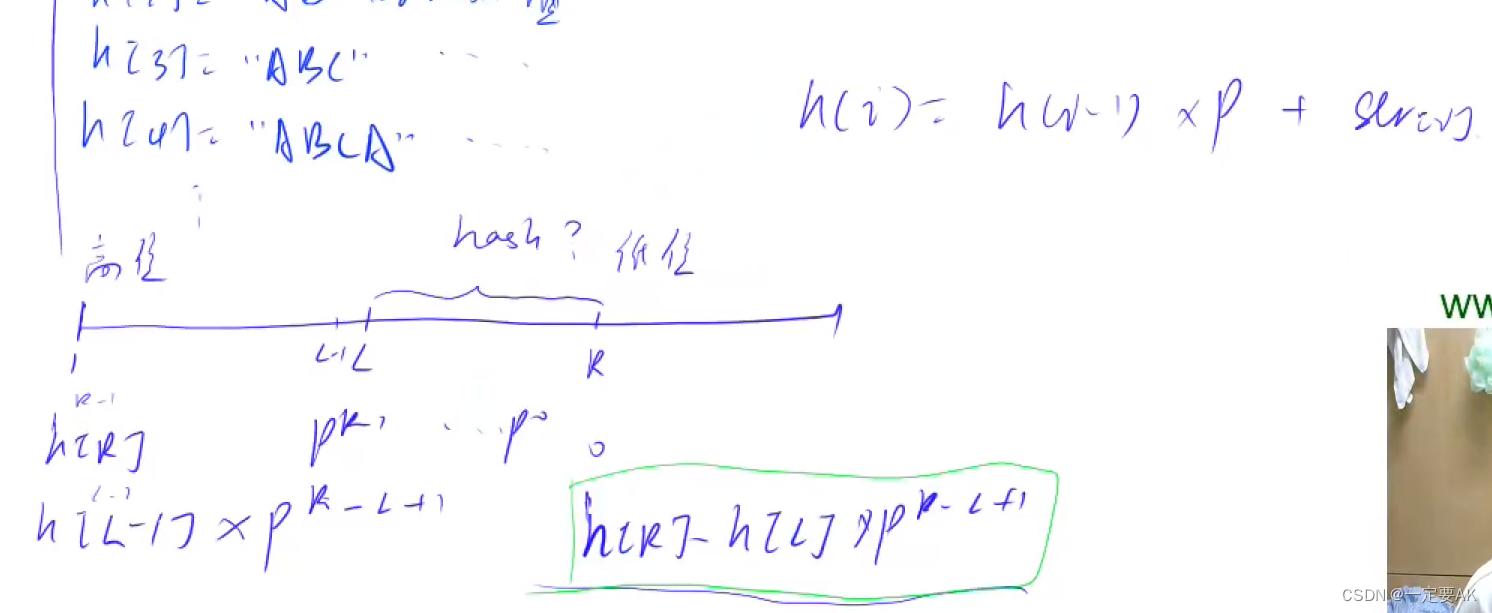 h[3]= "ABC" ....
h[4]= "ABCA" ....
h(i)= h(i-1) ×P + str[i]
高位
hash?
低位
1
L-1 L
R
R-1
h[R]
0
L-1
h[L-1] × P^R-L+1
h[R]-h[L]×P^R-L+1
WW
CSDN @一定要AK